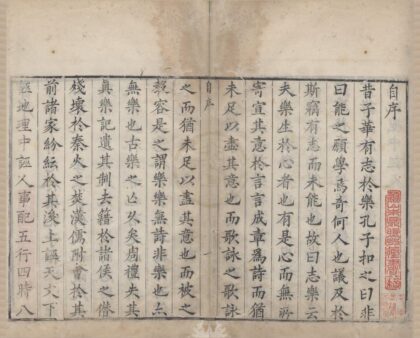 自序
昔子華有志於樂孔子和之曰非
曰能之願學焉奇何人也議及於
斯竊有志而未能也故曰志樂云
夫樂生於心者也有是心而無所
寄宣其意於言言成章爲詩而猶
未足以盡其意也而歌詠之歌詠
自序
之而猶未足以盡其意也而被之
聲容是之謂樂樂無詩非樂也亦
無樂也古樂之亡久矣周禮失其
眞樂記遺其制去籍於諸侯之僭
殘壞於秦火之焚漢儒附會於其
前諸家紛紜於其後上誣天文下
誣地理中誣人事配五行四時八